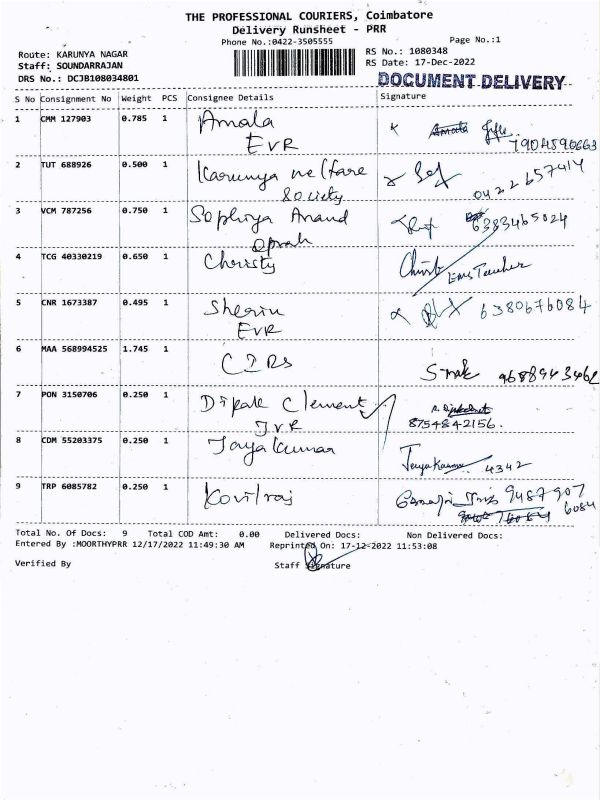 THE PROFESSIONAL COURIERS, Coimbatore
Delivery Runsheet - PRR
Phone No.:0422-3505555
Page No.:1
Route: KARUNYA NAGAR
RS No.: 1080348
Staff: SOUNDARRAJAN
RS Date: 17-Dec-2022
DRS No.: DCJB108034801
DOCUMENT DELIVERY
S No Consignment No Weight PCS Consignee Details Signature
1 CMM 127903 0.785 1 Amala
EVR 7904590663
2 TUT 688926 0.500 1 Karunya welfare
Society 0422 657414
3 VCM 787256 0.750 1 Sophiya Anand 6383465024
4 TCG 40330219 0.650 1 Christy
5 CNR 1673387 0.495 1 Sherin 6380676084
EVR
6 MAA 568994525 1.745 1 CIRs
7 PON 3150706 0.250 1 Dipak Clement
JVR 8754842156.
8 CDM 55203375 0.250 1 Jeyakumar Jeyakumar 4342
9 TRP 6085782 0.250 1 Kovilraj 9487907
6084
Total No. Of Docs: 9 Total COD Amt: 0.00 Delivered Docs: Non Delivered Docs:
Entered By :MOORTHYPRR 12/17/2022 11:49:30 AM Reprinted On: 17-12-2022 11:53:08
Verified By Staff Signature